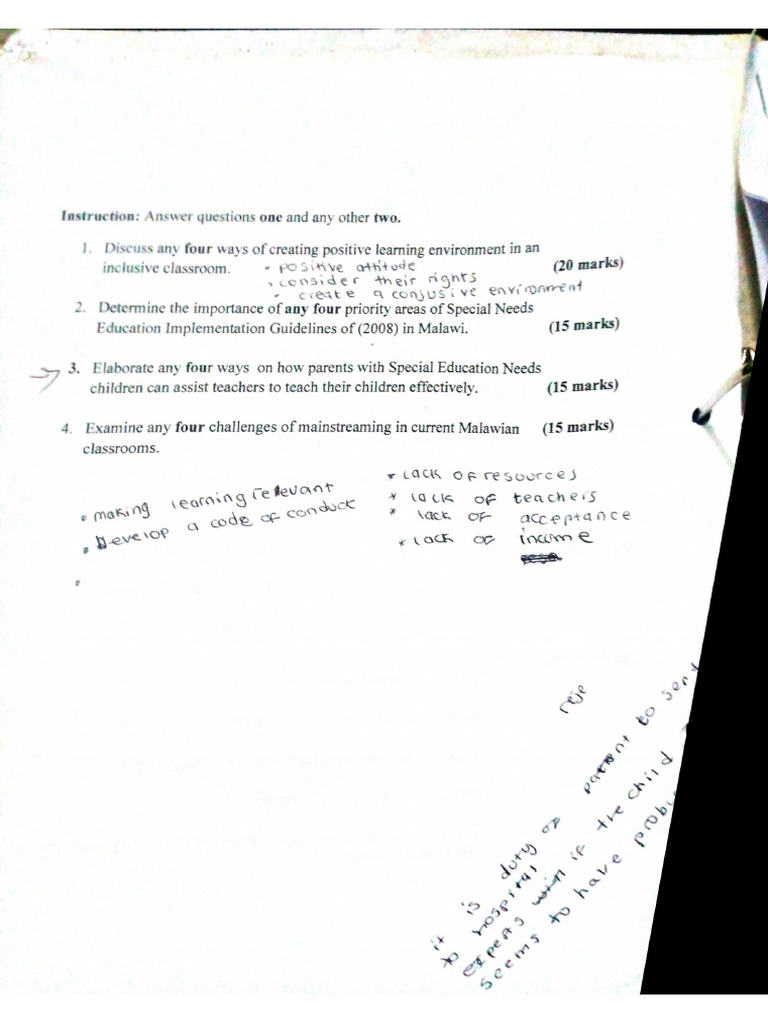 Instruction: Answer questions one and any other two.
1. Discuss any four ways of creating positive learning environment in an
inclusive classroom. (20 marks)
• positive attitude
• consider their rights
• create a conjusive environment
2. Determine the importance of any four priority areas of Special Needs
Education Implementation Guidelines of (2008) in Malawi. (15 marks)
3. Elaborate any four ways on how parents with Special Education Needs
children can assist teachers to teach their children effectively. (15 marks)
4. Examine any four challenges of mainstreaming in current Malawian (15 marks)
classrooms.
• making learning relevant
• Develop a code of conduct
* lack of resources
* lack of teachers
* lack of acceptance
* lack of income
reje
it is duty of parent to send
to hospital
experts if the child
seems to have